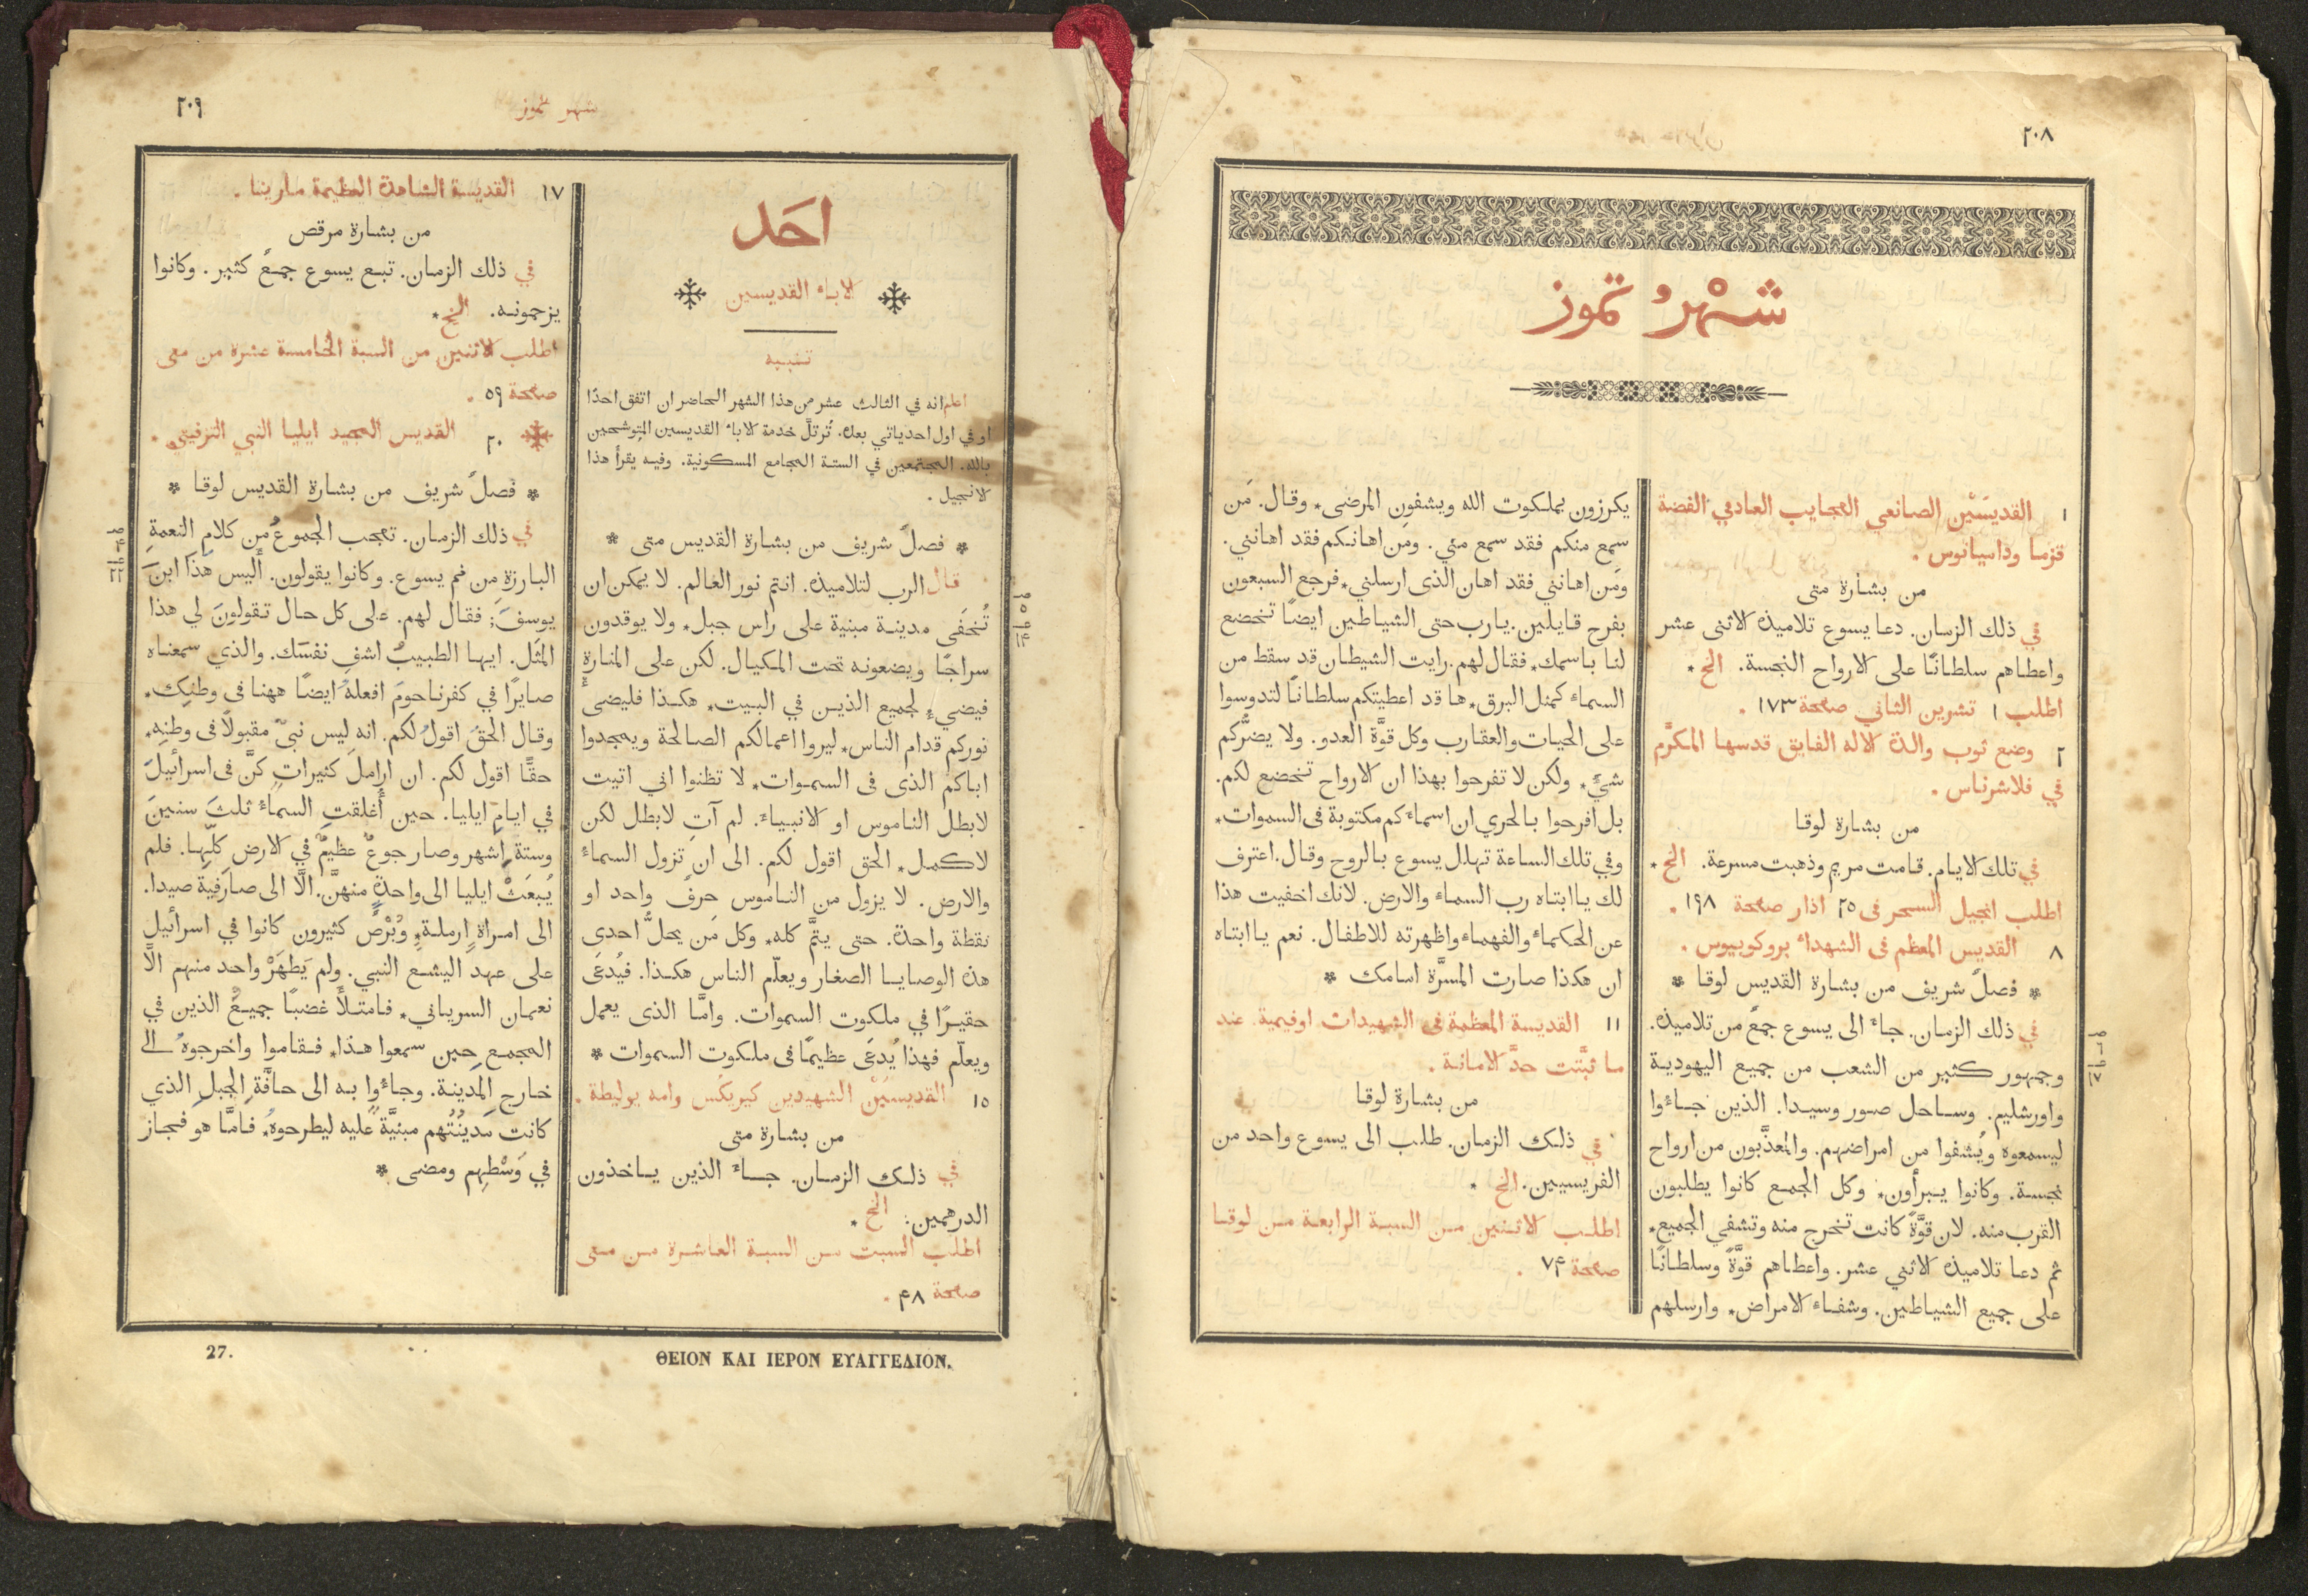 ٢٠٨
شَهْرُ تموز
١ القديسَيْن الصانعي العجايب العادمي الفضة
قزما وداميانوس .
من بشارة متى
في ذلك الزمان. دعا يسوع تلاميذه الاثنى عشر
واعطاهم سلطانًا على الارواح النجسة. الخ *
اطلب ١ تشرين الثاني صفحة ١٧٣ .
٢ وضع ثوب والدة الاله الفايق قدسها المكرَّم
في فلاشرناس .
من بشارة لوقا
في تلك الايام. قامت مريم وذهبت مسرعة. الخ *
اطلب انجيل السحر فى ٢٥ اذار صفحة ١٩٨ .
٨ القديس المعظم فى الشهداء بروكوبيوس .
* فصلٌ شريف من بشارة القديس لوقا *
في ذلك الزمان. جاء الى يسوع جمعٌ من تلاميذه.
وجمهور كثير من الشعب من جميع اليهودية
واورشليم. وساحل صور وصيدا. الذين جاءوا
ليسمعوه ويُشفوا من امراضهم. والمعذَّبون من ارواح
نجسة. وكانوا يبرأون* وكل الجمع كانوا يطلبون
القرب منه. لان قوَّةً كانت تخرج منه وتشفي الجميع*
ثم دعا تلاميذه الاثني عشر. واعطاهم قوَّةً وسلطانًا
على جميع الشياطين. وشفاء الامراض* وارسلهم
يكرزون بملكوت الله ويشفون المرضى* وقال. مَن
سمع منكم فقد سمع مني. ومَن اهانكم فقد اهانني.
ومَن اهانني فقد اهان الذى ارسلني* فرجع السبعون
بفرح قايلين. يارب حتى الشياطين ايضًا تخضع
لنا باسمك* فقال لهم. رايت الشيطان قد سقط من
السماء كمثل البرق* ها قد اعطيتكم سلطانًا لتدوسوا
على الحيات والعقارب وكل قوَّة العدو. ولا يضرُّكم
شيءٌ* ولكن لا تفرحوا بهذا ان الارواح تخضع لكم.
بل افرحوا بالحري ان اسماءكم مكتوبة فى السموات*
وفي تلك الساعة تهلل يسوع بالروح وقال. اعترف
لك يا ابتاه رب السماء والارض. لانك اخفيت هذا
عن الحكماء والفهماء واظهرته للاطفال. نعم يا ابتاه
ان هكذا صارت المسرَّة امامك *
١١ القديسة المعظمة فى الشهيدات اوفيمية عند
ما ثبَّتت حدَّ الامانة .
من بشارة لوقا
في ذلك الزمان. طلب الى يسوع واحد من
الفريسيين. الخ *
اطلب الاثنين من السبة الرابعة من لوقا
صفحة ٧۴ .
شهر تموز
٢٠٩
احَد
الاباء القديسين
تنبيه
اعلم انه في الثالث عشر من هذا الشهر الحاضر ان اتفق احدًا
او في اول احد ياتي بعده. تُرتلَّ خدمة الاباء القديسين المتوشحين
بالله. المجتمعين في الستة المجامع المسكونية. وفيه يقرأ هذا
الانجيل .
* فصلٌ شريف من بشارة القديس متى *
قال الرب لتلاميذه. انتم نور العالم. لا يمكن ان
تُخفَى مدينة مبنية على راس جبل* ولا يوقدون
سراجًا ويضعونه تحت المكيال. لكن على المنارة
فيضيء لجميع الذين في البيت* هكذا فليضئ
نوركم قدام الناس* ليروا اعمالكم الصالحة ويمجدوا
اباكم الذى فى السموات* لا تظنوا اني اتيت
لابطل الناموس او الانبياء. لم آتِ لابطل لكن
لاكمل* الحق اقول لكم. الى ان تزول السماء
والارض. لا يزول من الناموس حرفٌ واحد او
نقطة واحدة. حتى يتمَّ كله* وكل مَن يحلُّ احدى
هذه الوصايا الصغار ويعلّم الناس هكذا. فيُدعَى
حقيرًا في ملكوت السموات. وامَّا الذى يعمل
ويعلّم فهذا يُدعَى عظيمًا فى ملكوت السموات *
١٥ القديسَيْن الشهيدين كيريكس وامه يوليطة .
من بشارة متى
في ذلك الزمان. جاء الذين ياخذون
الدرهمين: الخ *
اطلب السبت من السبة العاشرة من متى
صفحة ۴٨ .
١٧ القديسة الشاهدة العظيمة مارينا .
من بشارة مرقص
في ذلك الزمان. تبع يسوع جمعٌ كثير. وكانوا
يزحمونه. الخ *
اطلب الاثنين من السبة الخامسة عشرة من متى
صفحة ٥٩ .
٢٠ القديس المجيد ايليا النبي الثزفيتي .
* فصلٌ شريف من بشارة القديس لوقا *
في ذلك الزمان. تعجب الجموعُ من كلامِ النعمةِ
البارزةِ من فم يسوع. وكانوا يقولون. أَليس هَذَا ابنَ
يوسفَ; فقال لهم. على كل حال تقولونَ لي هذا
المَثَل. ايها الطبيبُ اشفِ نفسَك. والذي سمعناه
صايرًا في كفرناحومَ افعلهُ ايضًا ههنا فى وطنِك*
وقال الحقُ اقولُ لكم. انه ليس نبيٌّ مقبولًا فى وطنِهِ*
حقًّا اقول لكم. ان اراملَ كثيراتٍ كنَّ فى اسرائيلَ
في ايامِ ايليا. حين أُغلقتِ السماءُ ثلثَ سنينَ
وستة اشهر وصار جوعٌ عظيمٌ في الارضِ كلّها. فلم
يُبعَثْ ايليا الى واحدةٍ منهنَّ. الَّا الى صارفيةِ صيدا.
الى امراةٍ ارملةٍ* وبُرْصٌ كثيرون كانوا في اسرائيل
على عهد اليشع النبي. ولم يَطهَرْ واحد منهم الَّا
نعمان السرياني* فامتلأَ غضبًا جميعُ الذين في
المجمع حين سمعوا هذا* فقاموا واخرجوهُ الى
خارج المدينة. وجاءُوا به الى حافَّةِ الجبلِ الذي
كانت مَدينُتُهم مبنيَّةً عليه ليطرحوهُ* فامَّا هو فجاز
في وَسْطِهِم ومضى *
ΘΕΙΟΝ ΚΑΙ ΙΕΡΟΝ ΕΥΑΓΓΕΛΙΟΝ.
27.